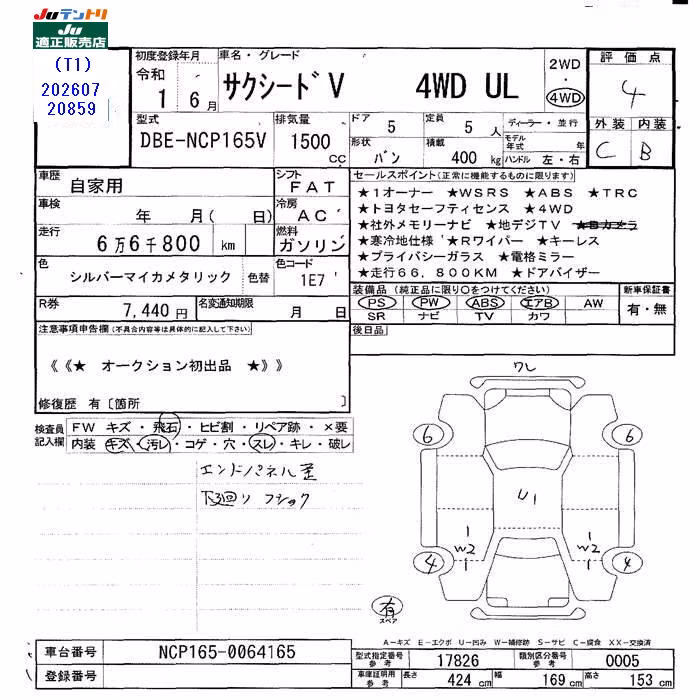 Juテントリ
Ju
適正販売店
(T1)
202607
20859
初度登録年月
令和
1 6 月
車名・グレード
サクシードV 4WD UL
2WD
・
4WD
評価点
4
型式
DBE-NCP165V
排気量
1500
cc
ドア
5
定員
5 人
ディーラー・並行
モデル
年式 年
形状
バン
積載
400 kg
ハンドル 左・右
外装 内装
C B
車歴
自家用
シフト
FAT
車検
年 月( 日)
冷房
AC
走行
6万6千800 km
燃料
ガソリン
色
シルバーマイカメタリック
色替
色コード
1E7
R券
7,440円
名変通知期限
月 日
セールスポイント(正常に機能するものに限ります)
★1オーナー ★WSRS ★ABS ★TRC
★トヨタセーフティセンス ★4WD
★社外メモリーナビ ★地デジTV ★Bカメラ
★寒冷地仕様 ★Rワイパー ★キーレス
★プライバシーガラス ★電格ミラー
★走行66,800KM ★ドアバイザー
装備品(純正品に限り○をつけてください)
PS PW ABS エアB AW
SR ナビ TV カワ
新車保証書
有・無
後日品
注意事項申告欄(不具合内容等は具体的に記入して下さい)
《《★ オークション初出品 ★》》
修復歴 有〔箇所 〕
検査員
記入欄
FW キズ・飛石・ヒビ割・リペア跡・×要
内装 キズ・汚レ・コゲ・穴・スレ・キレ・破レ
エンドパネル歪
下廻り フショク
ワレ
6 6
U1
1 1
W2 W2
1 1
4 4
有
スペア
A−キズ E−エクボ U−凹み W−補修跡 S−サビ C−腐食 XX−交換済
車台番号
NCP165-0064165
登録番号
型式指定番号
参考
17826
類別区分番号
参考
0005
車庫証明用
参考
長さ
424 cm
幅
169 cm
高さ
153 cm